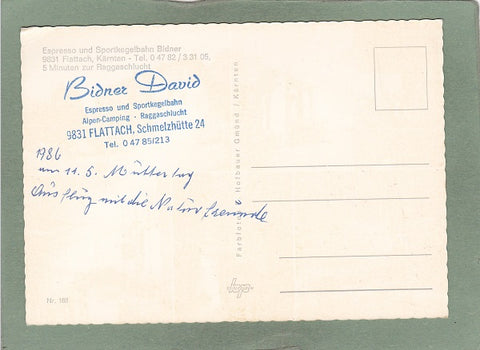 Espresso und Sportkegelbahn Bidner
9831 Flattach, Kärnten - Tel. 0 47 82 / 3 31 05,
5 Minuten zur Raggaschlucht
Bidner David
Espresso und Sportkegelbahn
Alpen-Camping · Raggaschlucht
9831 FLATTACH, Schmelzhütte 24
Tel. 0 47 85/213
1986
am 11. 5. Muttertag
Ausflug mit die Naturfreunde
Hofbauer Gmünd / Kärnten
Nr. 163